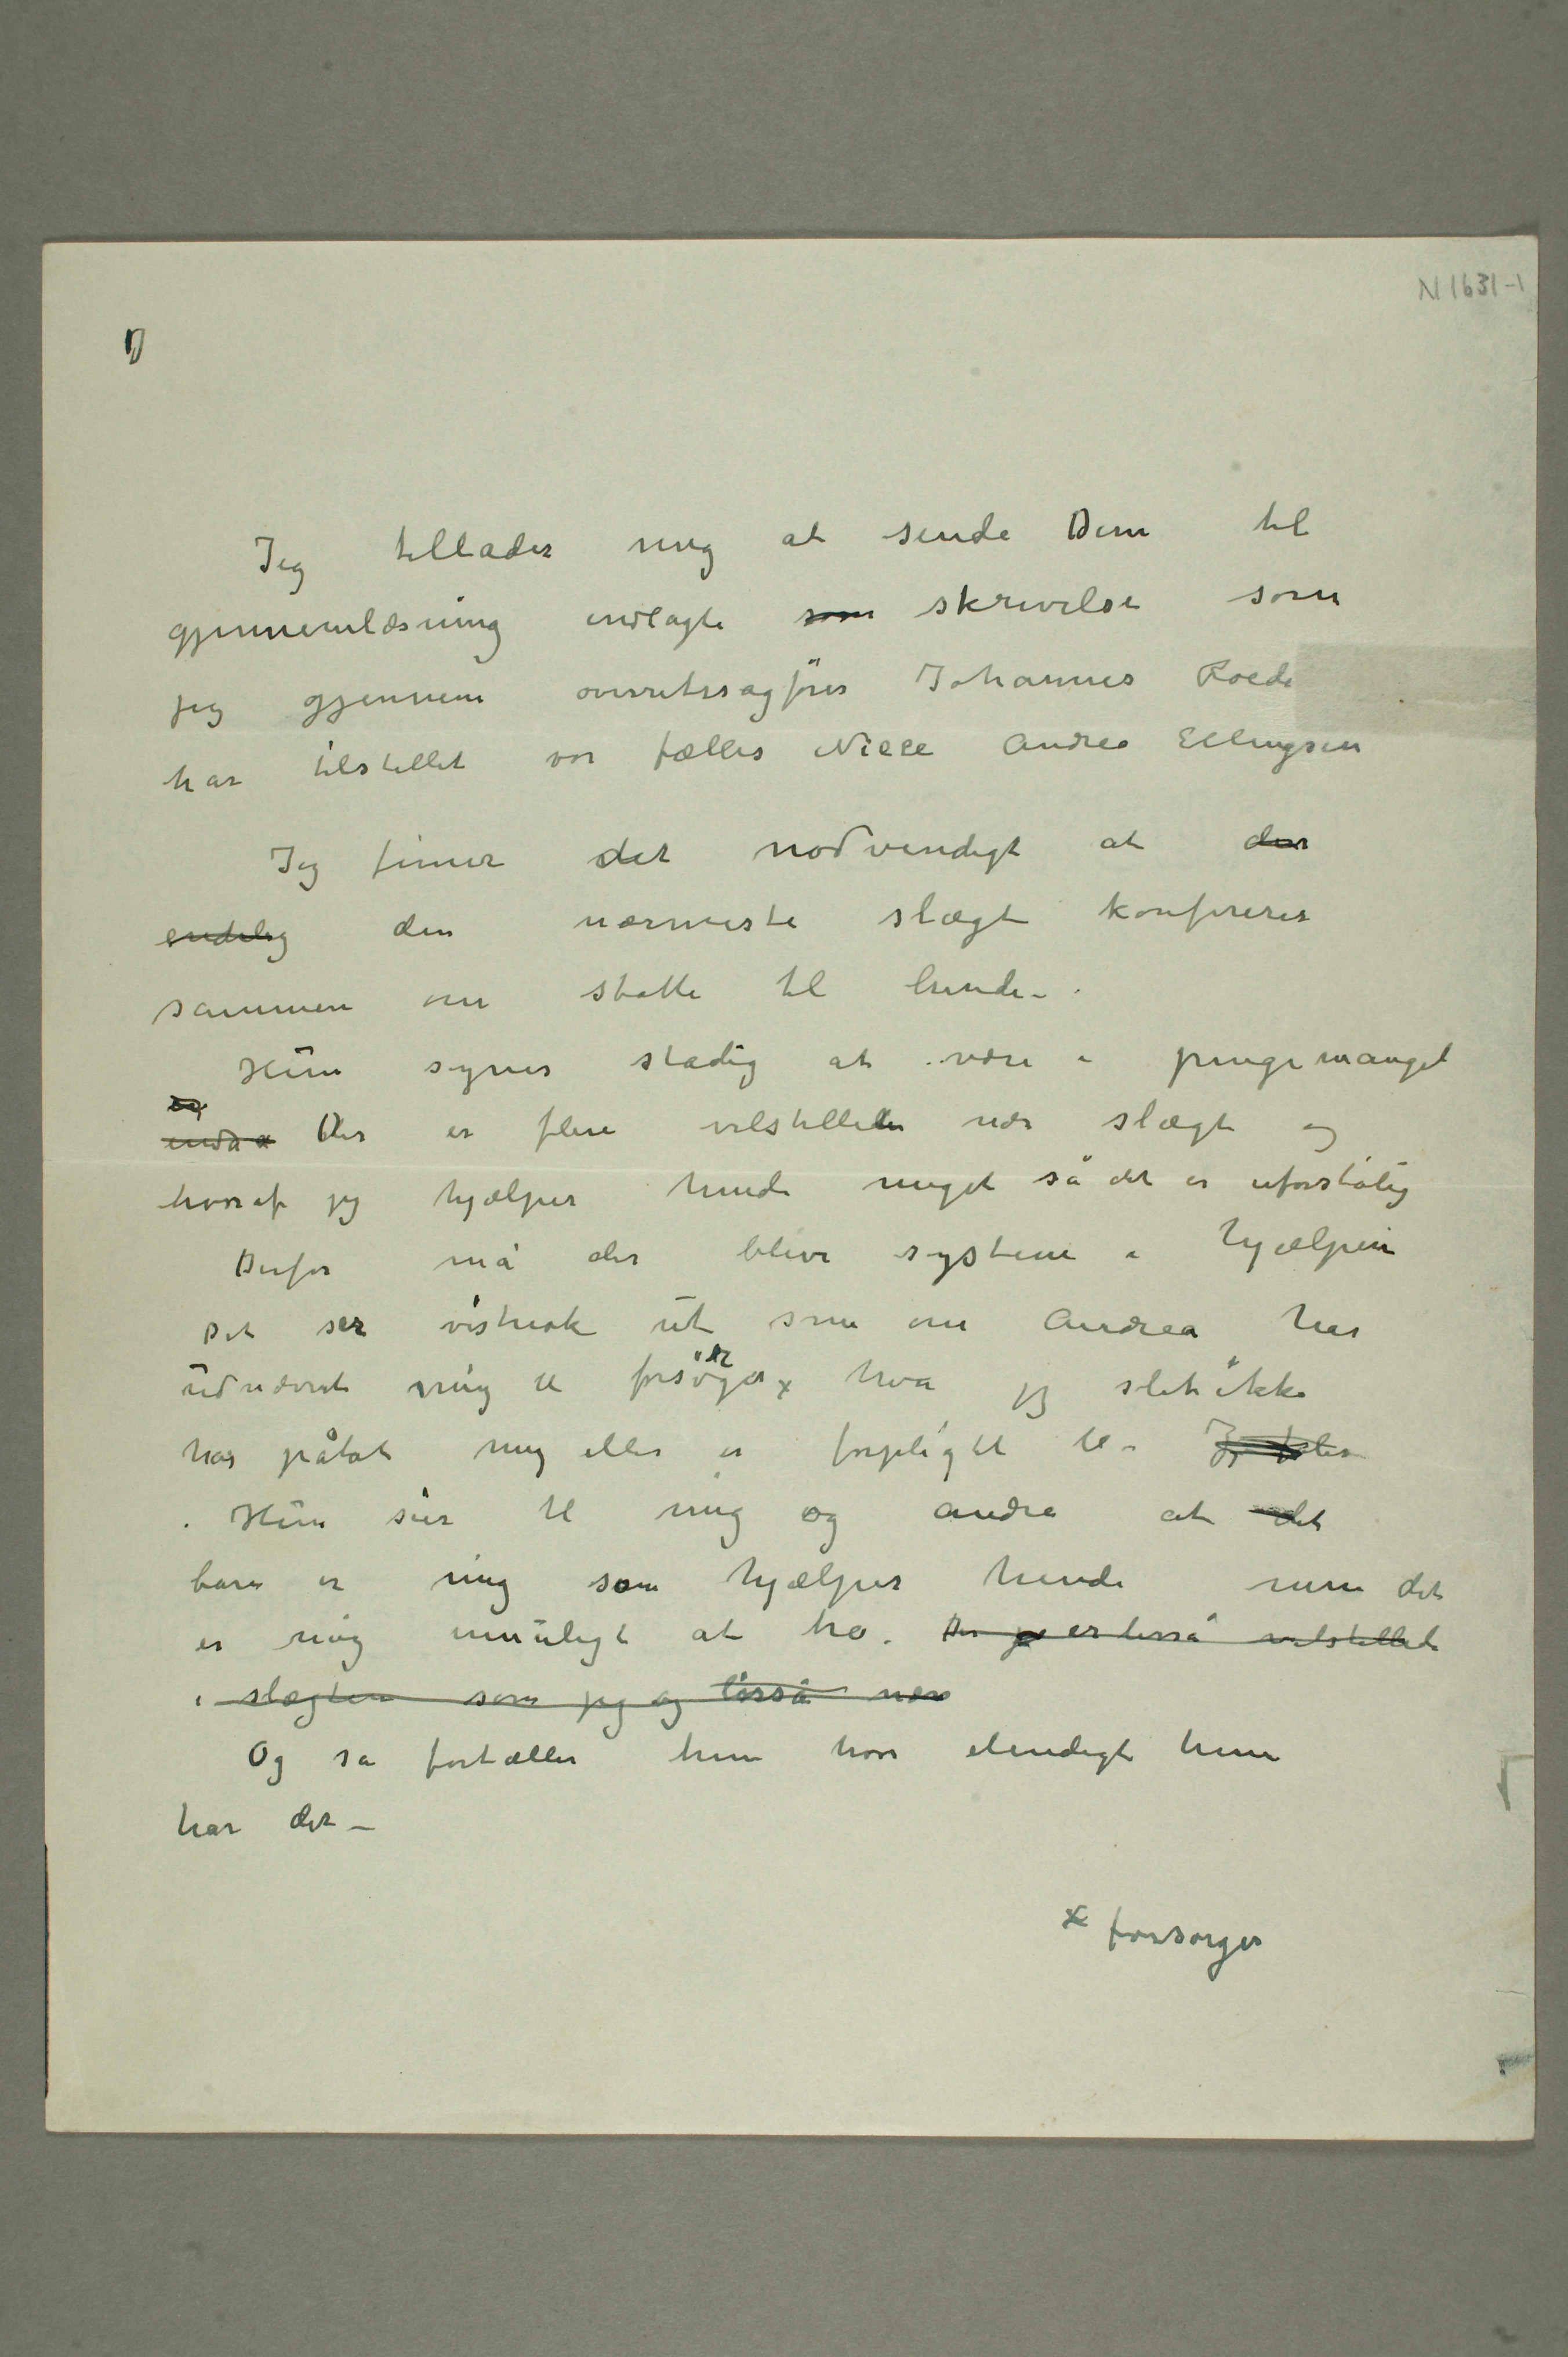 N 1631-1
1)
Jeg tillader mig at sende Dem til
gjennemlæsning indlagte som skrivelse som
jeg gjennem overretssagfører Johannes Roede
har tilstillet vor fælles Niece Andrea Ellingsen
Jeg finner det nødvendigt at den
endelig den nærmeste slægt konfererer
sammen om støtte til hende –.
Hun synes stadig at være i pengemangel
og
endda Der er flere velstillede nær slægt og
hvoraf jeg hjælper hende meget så det er uforståelig
Derfor må der blive system i hjælpen
Det ser vistnok ut som om Andrea har
udnævnt mig til forsørger x hva jeg slet ikke
har påtat mig eller er forpligtet til –
. Hun sier til mig og andre at det
bare er mig som hjælper hende men det
er mig umuligt at tro. Der er ligeså velstillede
i slægten som jeg og ligeså nær
Og så fortæller hun hvor elendigt hun
har det –
x forsørger